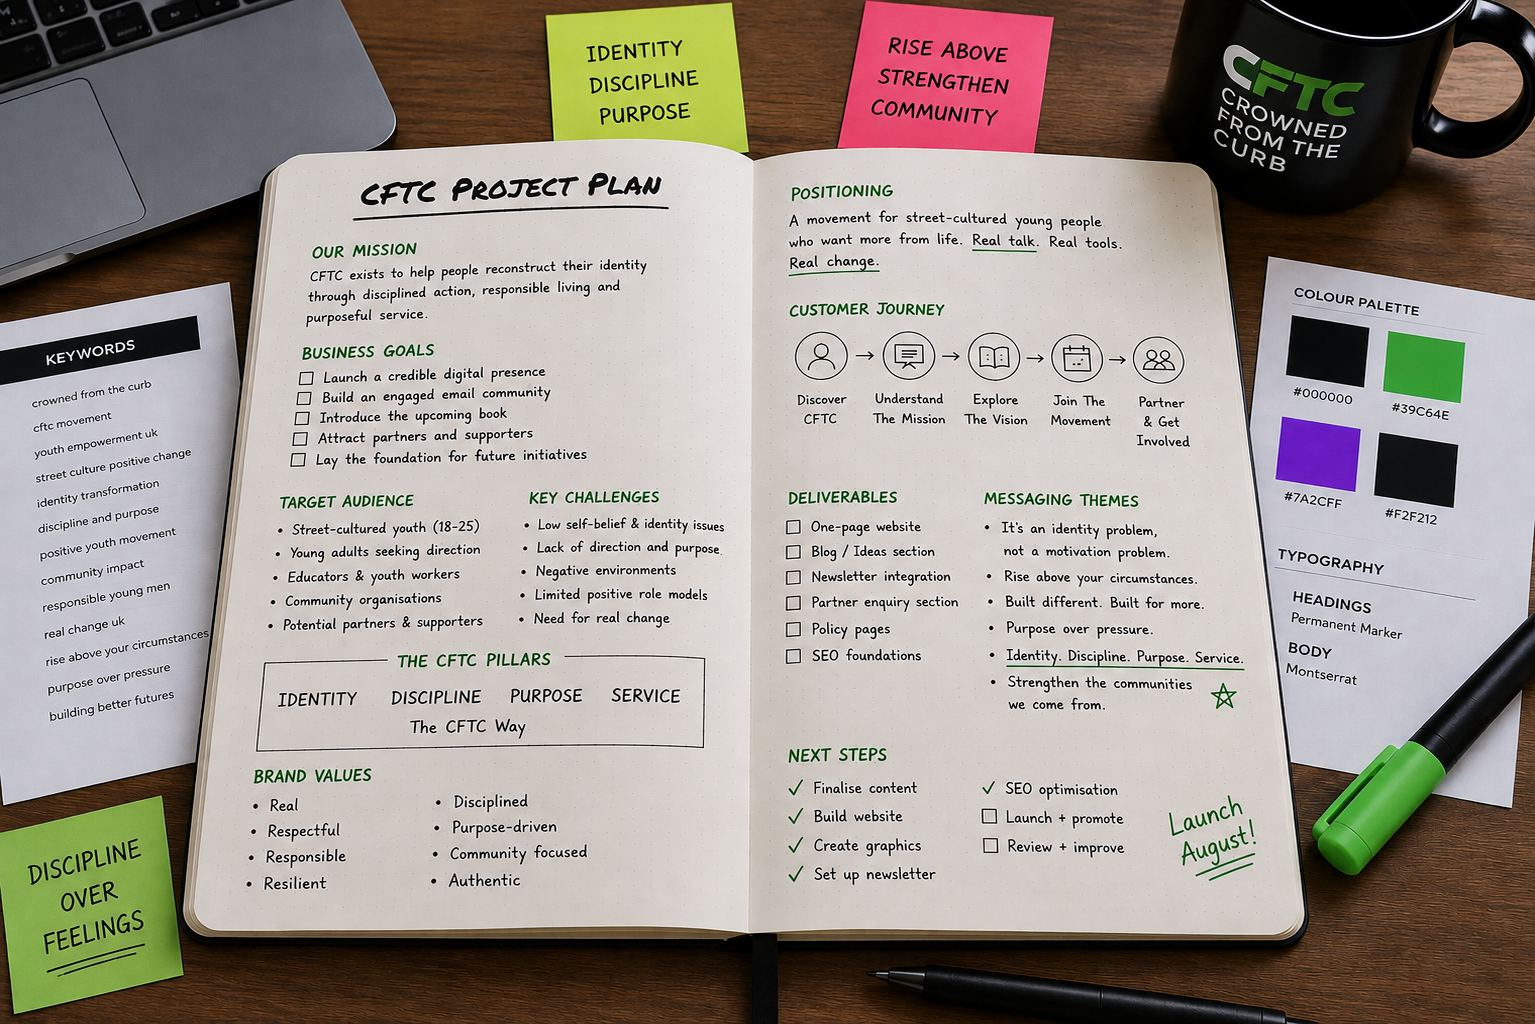 IDENTITY
DISCIPLINE
PURPOSE
RISE ABOVE
STRENGTHEN
COMMUNITY
CFTC
CROWNED
FROM THE
CURB
KEYWORDS
crowned from the curb
cftc movement
youth empowerment uk
street culture positive change
identity transformation
discipline and purpose
positive youth movement
community impact
responsible young men
real change uk
rise above your circumstances
purpose over pressure
building better futures
DISCIPLINE
OVER
FEELINGS
CFTC PROJECT PLAN
OUR MISSION
CFTC exists to help people reconstruct their identity
through disciplined action, responsible living and
purposeful service.
BUSINESS GOALS
Launch a credible digital presence
Build an engaged email community
Introduce the upcoming book
Attract partners and supporters
Lay the foundation for future initiatives
TARGET AUDIENCE
• Street-cultured youth (18-25)
• Young adults seeking direction
• Educators & youth workers
• Community organisations
• Potential partners & supporters
KEY CHALLENGES
• Low self-belief & identity issues
• Lack of direction and purpose
• Negative environments
• Limited positive role models
• Need for real change
THE CFTC PILLARS
IDENTITY DISCIPLINE PURPOSE SERVICE
The CFTC Way
BRAND VALUES
• Real
• Respectful
• Responsible
• Resilient
• Disciplined
• Purpose-driven
• Community focused
• Authentic
POSITIONING
A movement for street-cultured young people
who want more from life. Real talk. Real tools.
Real change.
CUSTOMER JOURNEY
Discover
CFTC
Understand
The Mission
Explore
The Vision
Join The
Movement
Partner
& Get
Involved
DELIVERABLES
One-page website
Blog / Ideas section
Newsletter integration
Partner enquiry section
Policy pages
SEO foundations
MESSAGING THEMES
• It's an identity problem,
not a motivation problem.
• Rise above your circumstances.
• Built different. Built for more.
• Purpose over pressure.
• Identity. Discipline. Purpose. Service.
• Strengthen the communities
we come from.
NEXT STEPS
✓ Finalise content
✓ Build website
✓ Create graphics
✓ Set up newsletter
✓ SEO optimisation
Launch + promote
Review + improve
Launch
August!
COLOUR PALETTE
#000000
#39C64E
#7A2CFF
#F2F212
TYPOGRAPHY
HEADINGS
Permanent Marker
BODY
Montserrat